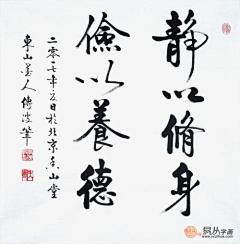 静以脩身
儉以養德
二零一七年春日於北京香山堂
東山墨人傅波筆
易从字画